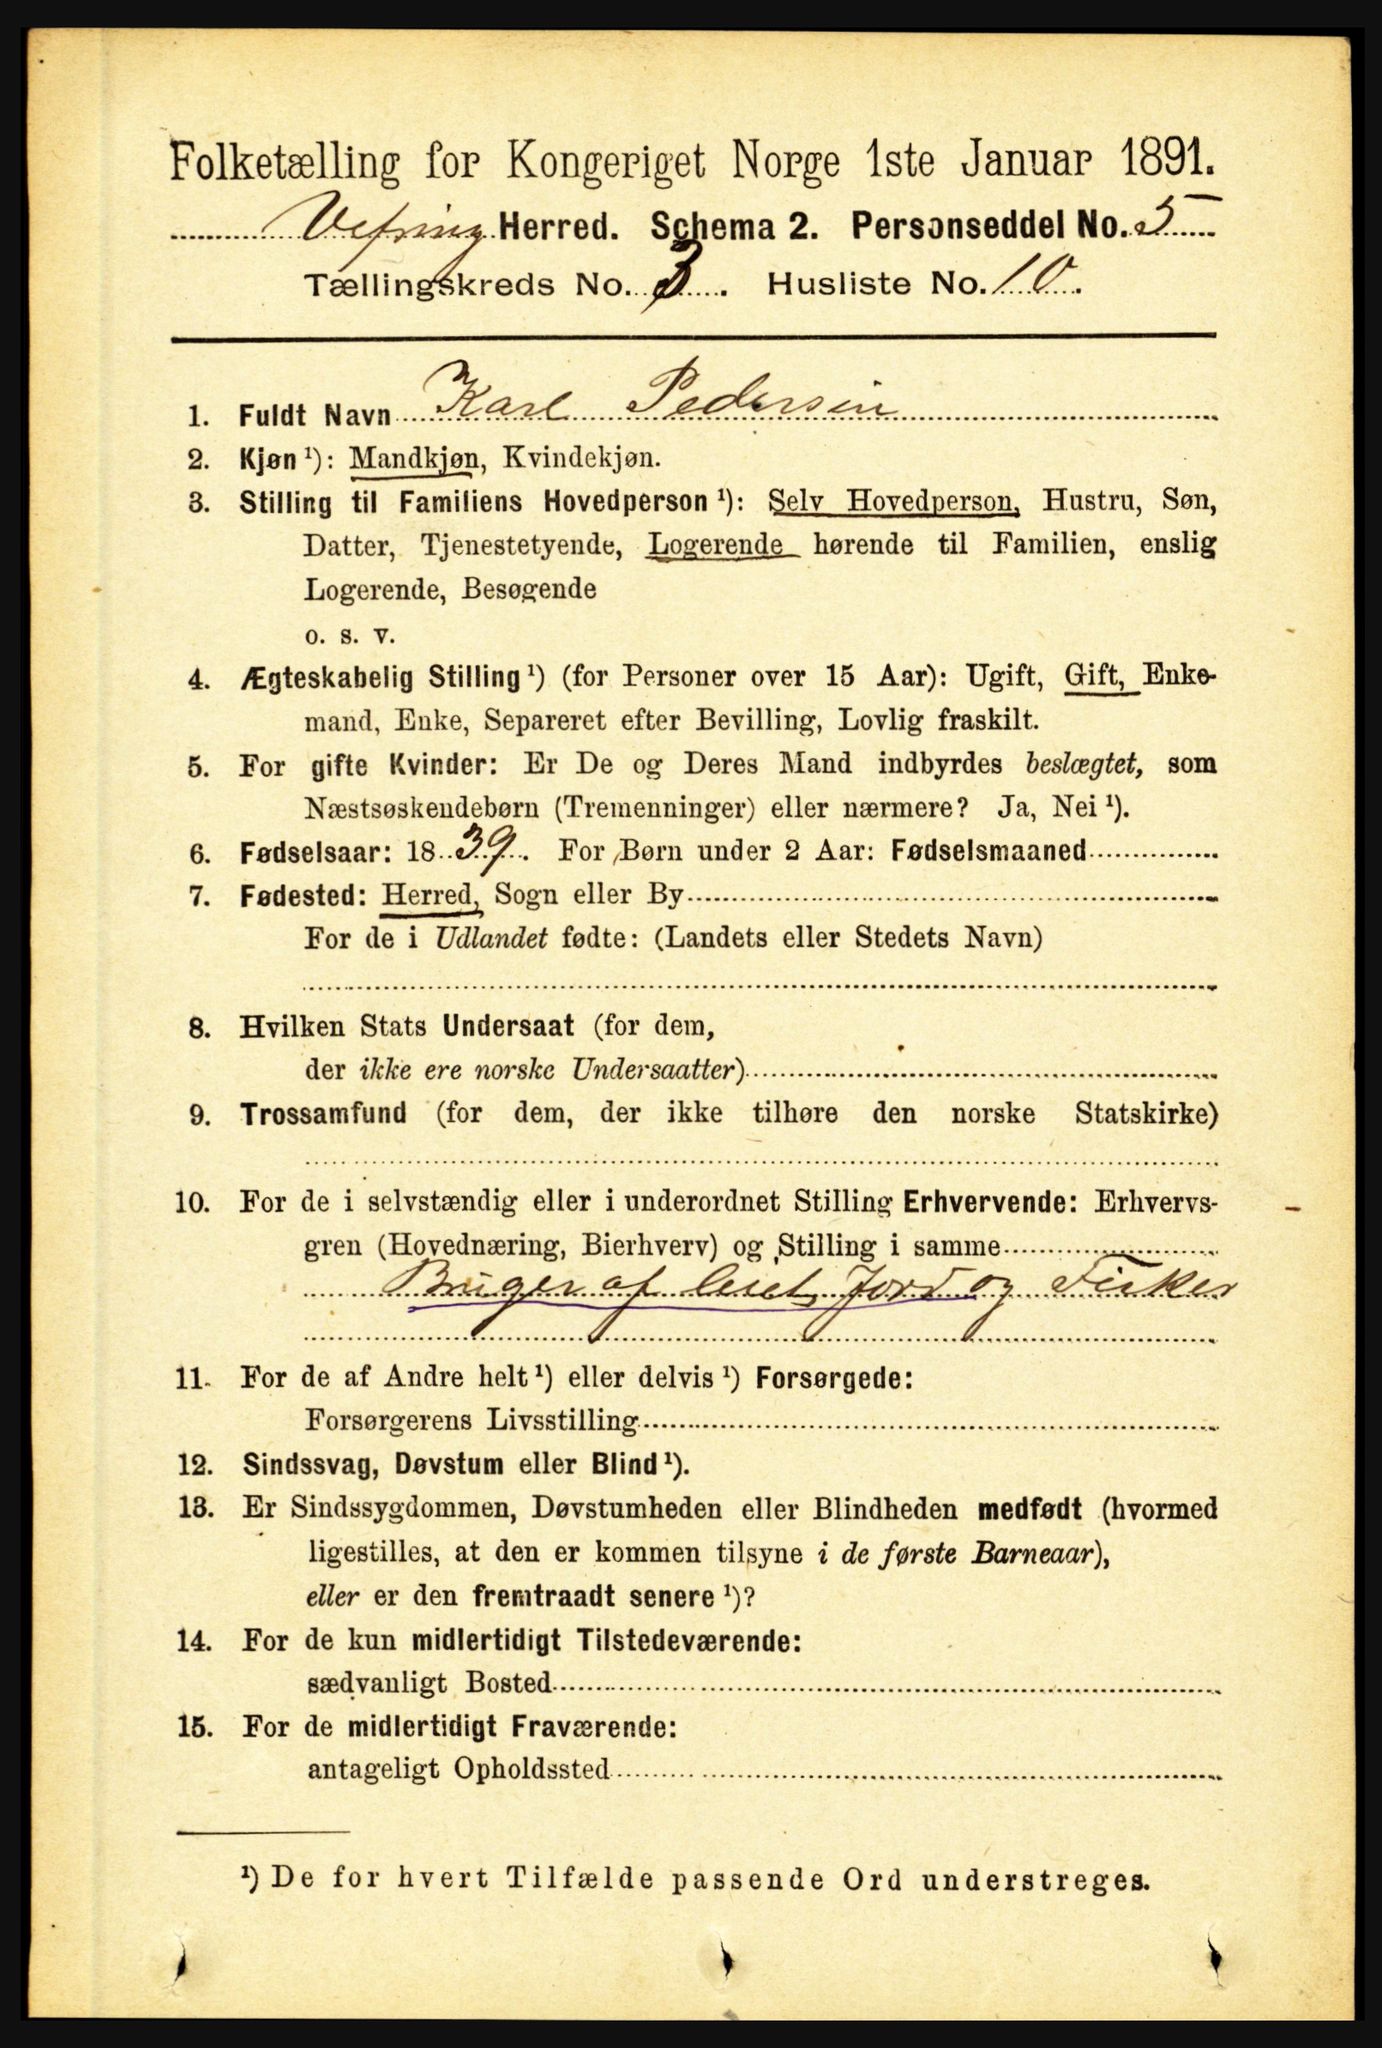 Folketælling for Kongeriget Norge 1ste Januar 1891.
Vefsing Herred. Schema 2. Personseddel No. 5
Tællingskreds No. 3. Husliste No. 10.
1. Fuldt Navn Karl Pedersen
2. Kjøn ¹): Mandkjøn, Kvindekjøn.
3. Stilling til Familiens Hovedperson ¹): Selv Hovedperson, Hustru, Søn,
Datter, Tjenestetyende, Logerende hørende til Familien, enslig
Logerende, Besøgende
o. s. v.
4. Ægteskabelig Stilling ¹) (for Personer over 15 Aar): Ugift, Gift, Enke-
mand, Enke, Separeret efter Bevilling, Lovlig fraskilt.
5. For gifte Kvinder: Er De og Deres Mand indbyrdes beslægtet, som
Næstsøskendebørn (Tremenninger) eller nærmere? Ja, Nei ¹).
6. Fødselsaar: 1839. For Børn under 2 Aar: Fødselsmaaned
7. Fødested: Herred, Sogn eller By
For de i Udlandet fødte: (Landets eller Stedets Navn)
8. Hvilken Stats Undersaat (for dem,
der ikke ere norske Undersaatter)
9. Trossamfund (for dem, der ikke tilhøre den norske Statskirke)
10. For de i selvstændig eller i underordnet Stilling Erhvervende: Erhvervs-
gren (Hovednæring, Bierhverv) og Stilling i samme
Bruger af leiet Jord og Fisker
11. For de af Andre helt ¹) eller delvis ¹) Forsørgede:
Forsørgerens Livsstilling
12. Sindssvag, Døvstum eller Blind ¹).
13. Er Sindssygdommen, Døvstumheden eller Blindheden medfødt (hvormed
ligestilles, at den er kommen tilsyne i de første Barneaar),
eller er den fremtraadt senere ¹)?
14. For de kun midlertidigt Tilstedeværende:
sædvanligt Bosted
15. For de midlertidigt Fraværende:
antageligt Opholdssted
¹) De for hvert Tilfælde passende Ord understreges.